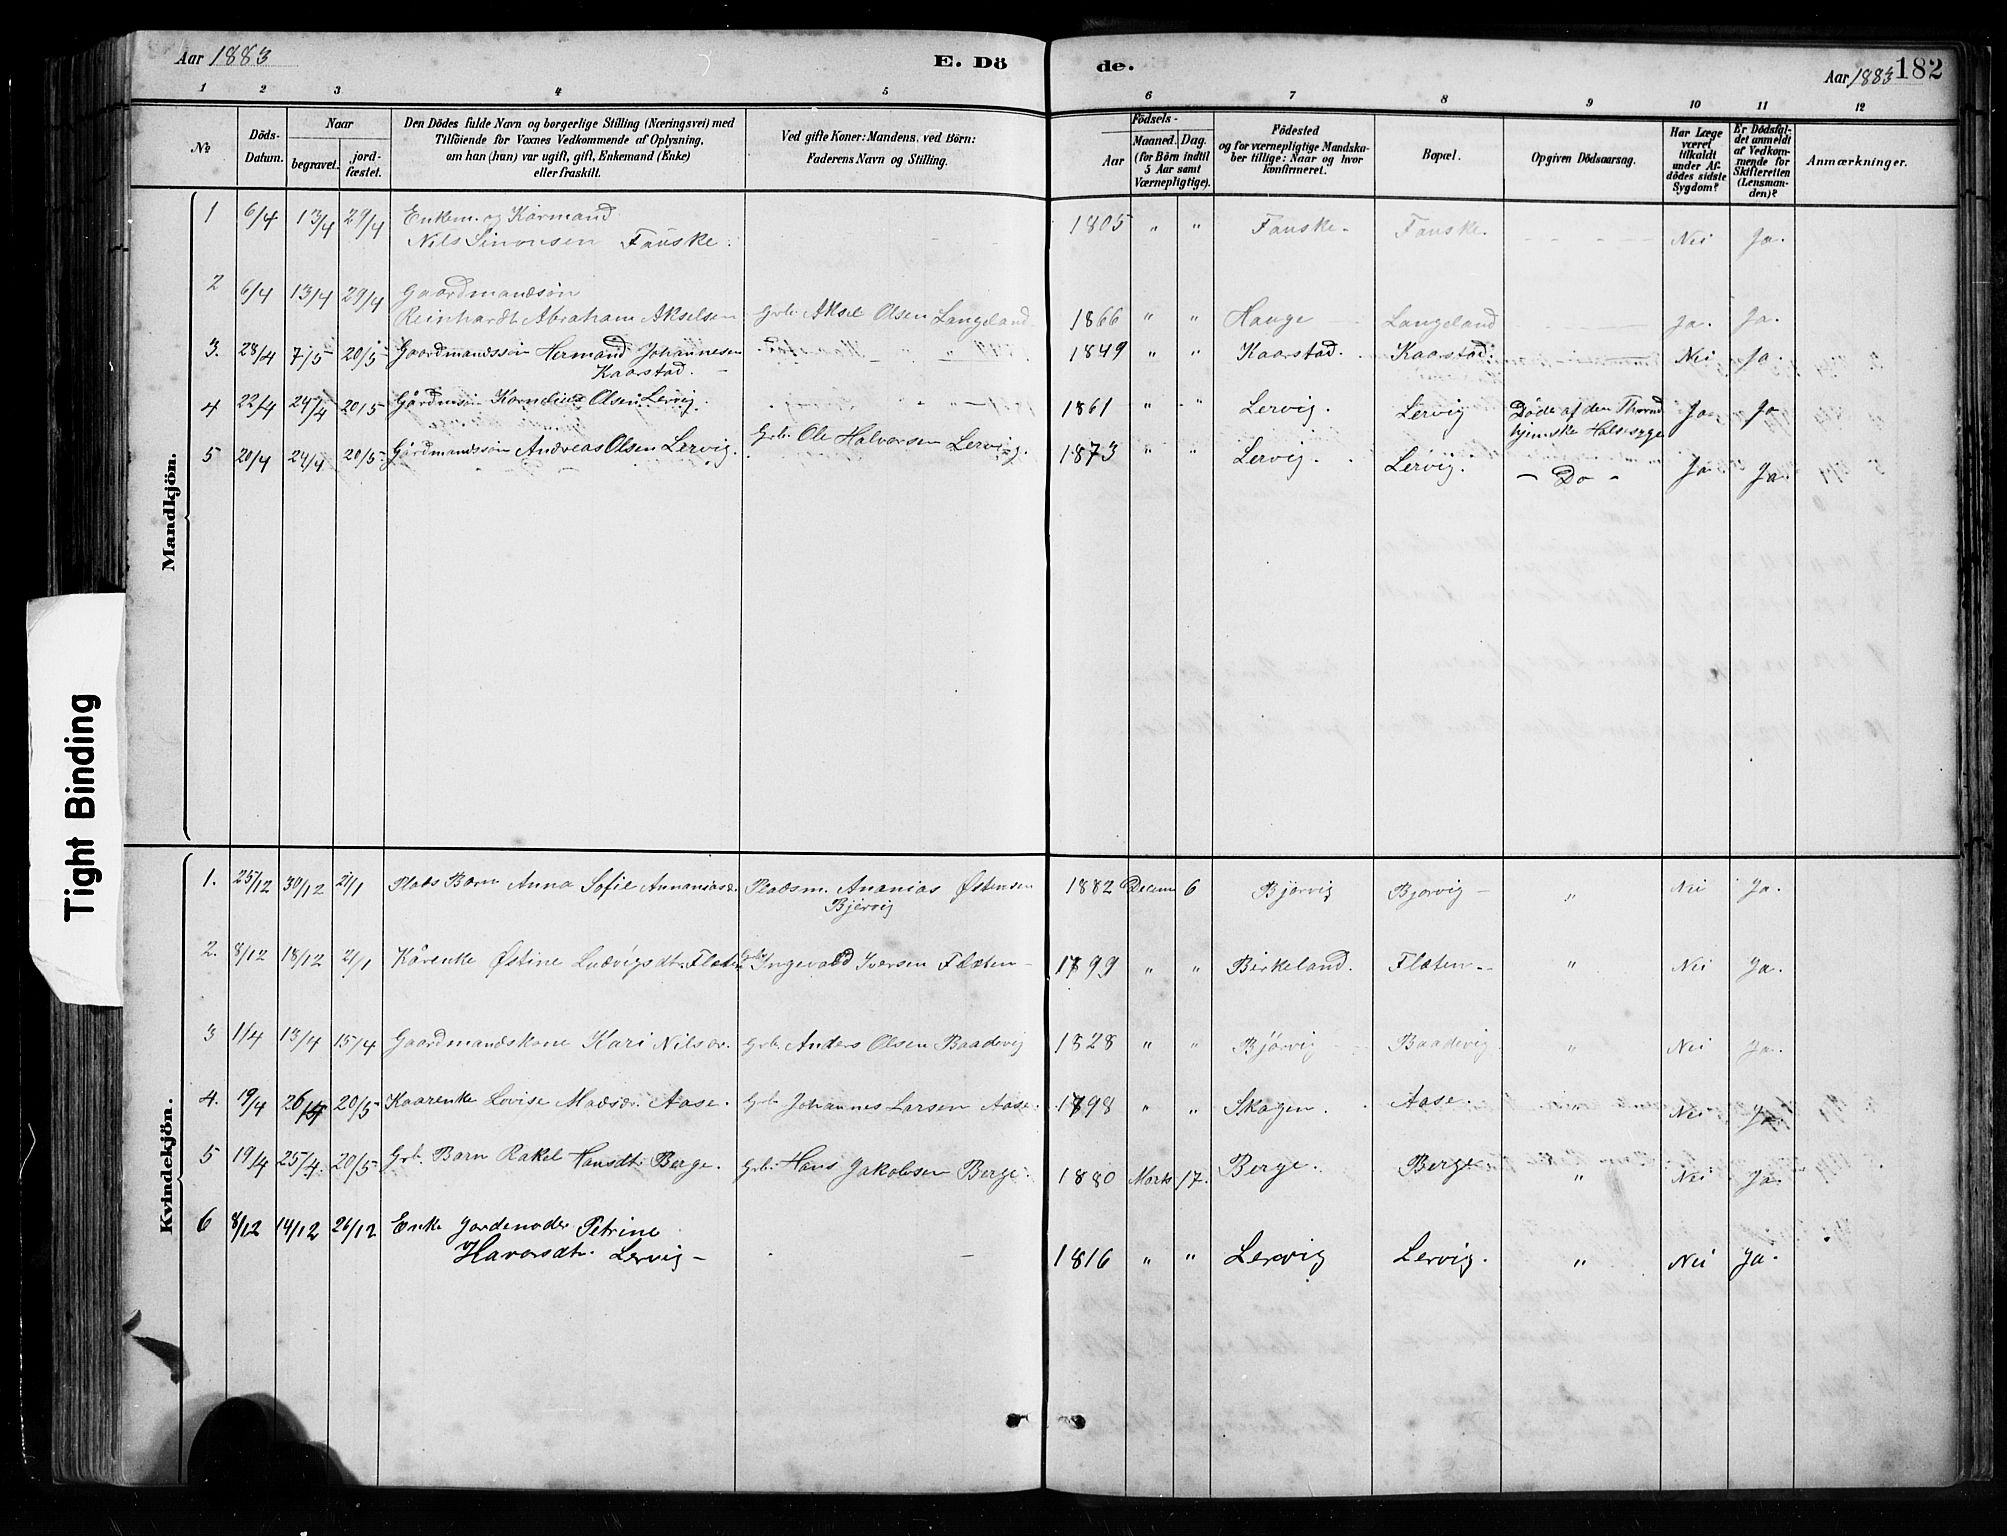 Aar 1883
E. Dö
de.
Aar 1883 182
1 2 3 4 5 6 7 8 9 10 11 12
No
Döds-Datum.
Naar
begravet. jord-fæstet.
Den Dödes fulde Navn og borgerlige Stilling (Næringsvei) med
Tilföiende for Voxnes Vedkommende af Oplysning,
om han (hun) var ugift, gift, Enkemand (Enke)
eller fraskilt.
Ved gifte Koner: Mandens, ved Börn:
Faderens Navn og Stilling.
Födsels-
Aar
Maaned. Dag.
(for Börn indtil
5 Aar samt
Værnepligtige).
Födested
og for værnepligtige Mandska-
ber tillige: Naar og hvor
konfirmeret.
Bopæl.
Opgiven Dödsaarsag.
Har Læge
været
tilkaldt
under Af-
dödes sidste
Sygdom?
Er Dödsfal-
det anmeldt
af Vedkom-
mende for
Skifteretten
(Lensman-
den)?
Anmærkninger.
Mandkjön.
1 6/4 13/4 29/4 Enkem. og Kårmand
Nils Simonsen Fauske. 1805 " " Fauske - Fauske. Nei Ja.
2 6/4 13/4 29/4 Gaardmandsön
Reinhardt Abraham Akselsen Grb. Aksel Olsen Langeland 1866 " " Hauge Langeland Ja. Ja.
3. 28/4 7/5 20/5 Gaardmandssön Hermand Johannesen
Kaarstad. 1849 " " Kaarstad. Kaarstad. Nei Ja.
4 22/4 24/4 20/5 Gårdmsön Kornelius Olsen Lervig. 1861 " " Lervig. Lervig Döde af den Thrond
hjemske Halssyge Ja. Ja
5 20/4 24/4 20/5 Gårdmandssön Andreas Olsen Lervig. Grb. Ole Halvorsen Lervig. 1873 " " Lervig. Lervig. - Do - Ja Ja.
Tight Binding
Kvindekjön.
1. 25/12 30/12 21/1 Plads Barn Anna Sofie Annaniasd. Pladsm. Ananias Østensen
Bjervig 1882 Decem 6 Bjørvig Bjørvig - " Nei Ja.
2. 8/12 18/12 21/1 Kårenke Østine Ludvigsdt. Flæten Grb. Ingevald Iversen Flæten - 1799 " " Birkeland. Flæten - " Nei Ja.
3 1/4 13/4 15/4 Gaardmandskone Kari Nilsdr. Grb. Anders Olsen Baadevig 1828 " " Bjørvig Baadevig " Nei Ja.
4. 19/4 26/4 20/5 Kaarenke Lovise Madsdr. Aase. Grb. Johannes Larsen Aase. 1798 " " Skogen. Aase. Nei Ja
5 19/4 25/4 20/5 Grb. Barn Rakel Hansdt. Berge. Grb. Hans Jakobsen Berge. 1880 Marts 17. Berge. Berge " Nei Ja.
6 8/12 14/12 26/12 Enke Jordemoder Petrine
Havorsdt. Lervig - 1816 " " Lervig Lervig. " Nei Ja.